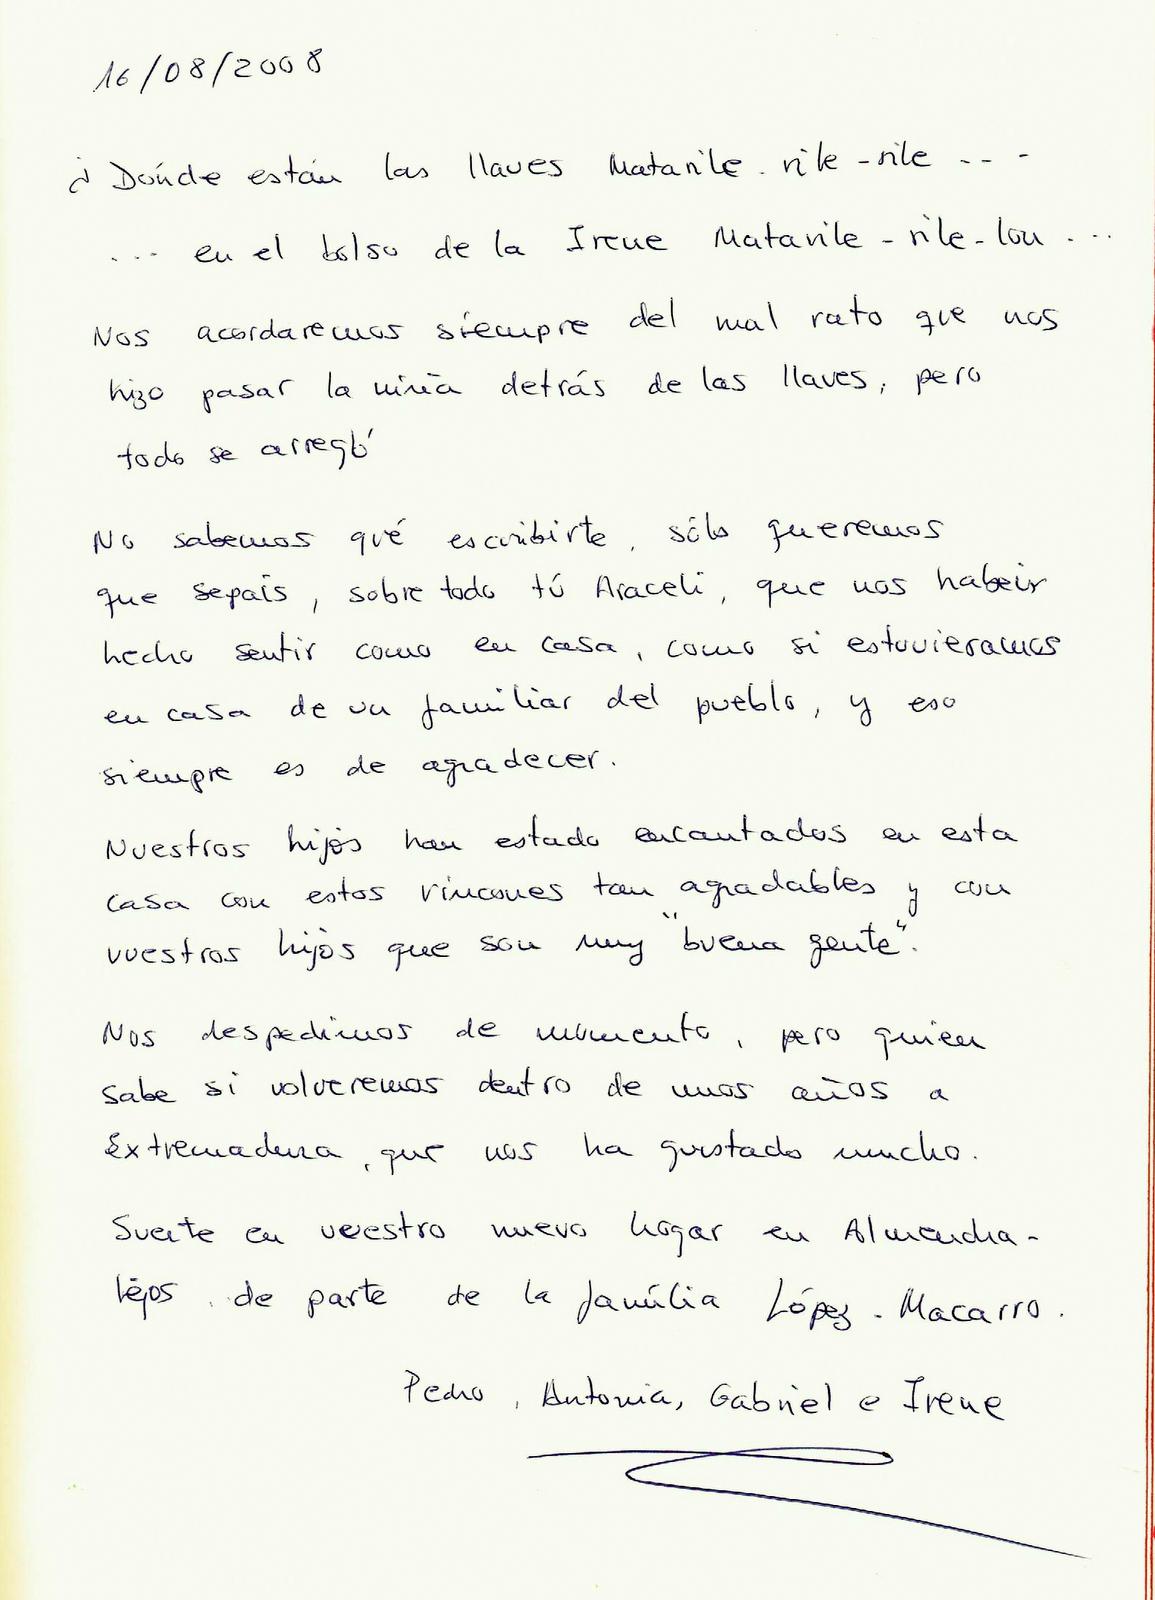 16/08/2008
¿Dónde están las llaves Matarile-rile-rile ...
... en el bolso de la Irene Matarile-rile-lon ...
Nos acordaremos siempre del mal rato que nos
hizo pasar la niña detrás de las llaves, pero
todo se arregló
No sabemos qué escribirte, sólo queremos
que sepais, sobre todo tú Araceli, que nos habeis
hecho sentir como en casa, como si estuvieramos
en casa de un familiar del pueblo, y eso
siempre es de agradecer.
Nuestros hijos han estado encantados en esta
casa con estos rincones tan agradables y con
vuestros hijos que son muy "buena gente".
Nos despedimos de momento, pero quien
sabe si volveremos dentro de unos años a
Extremadura, que nos ha gustado mucho.
Suerte en vuestro nuevo hogar en Almendra-
lejos, de parte de la família López-Macarro.
Pedro, Antonia, Gabriel e Irene